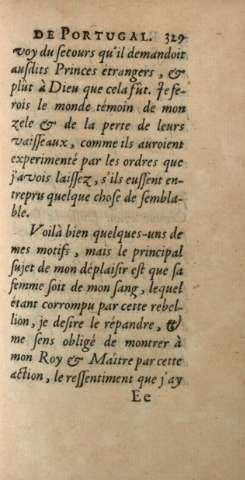 DE PORTUGAL. 329
voy du secours qu'il demandoit
ausdits Princes étrangers, &
plût à Dieu que cela fût. Je fe-
rois le monde témoin de mon
zele & de la perte de leurs
vaisseaux, comme ils auroient
experimenté par les ordres que
j'avois laissez, s'ils eussent en-
trepris quelque chose de sembla-
ble.
Voilà bien quelques-uns de
mes motifs, mais le principal
sujet de mon déplaisir est que sa
femme soit de mon sang, lequel
étant corrompu par cette rebel-
lion, je desire le répandre, &
me sens obligé de montrer à
mon Roy & Maître par cette
action, le ressentiment que j'ay
Ee